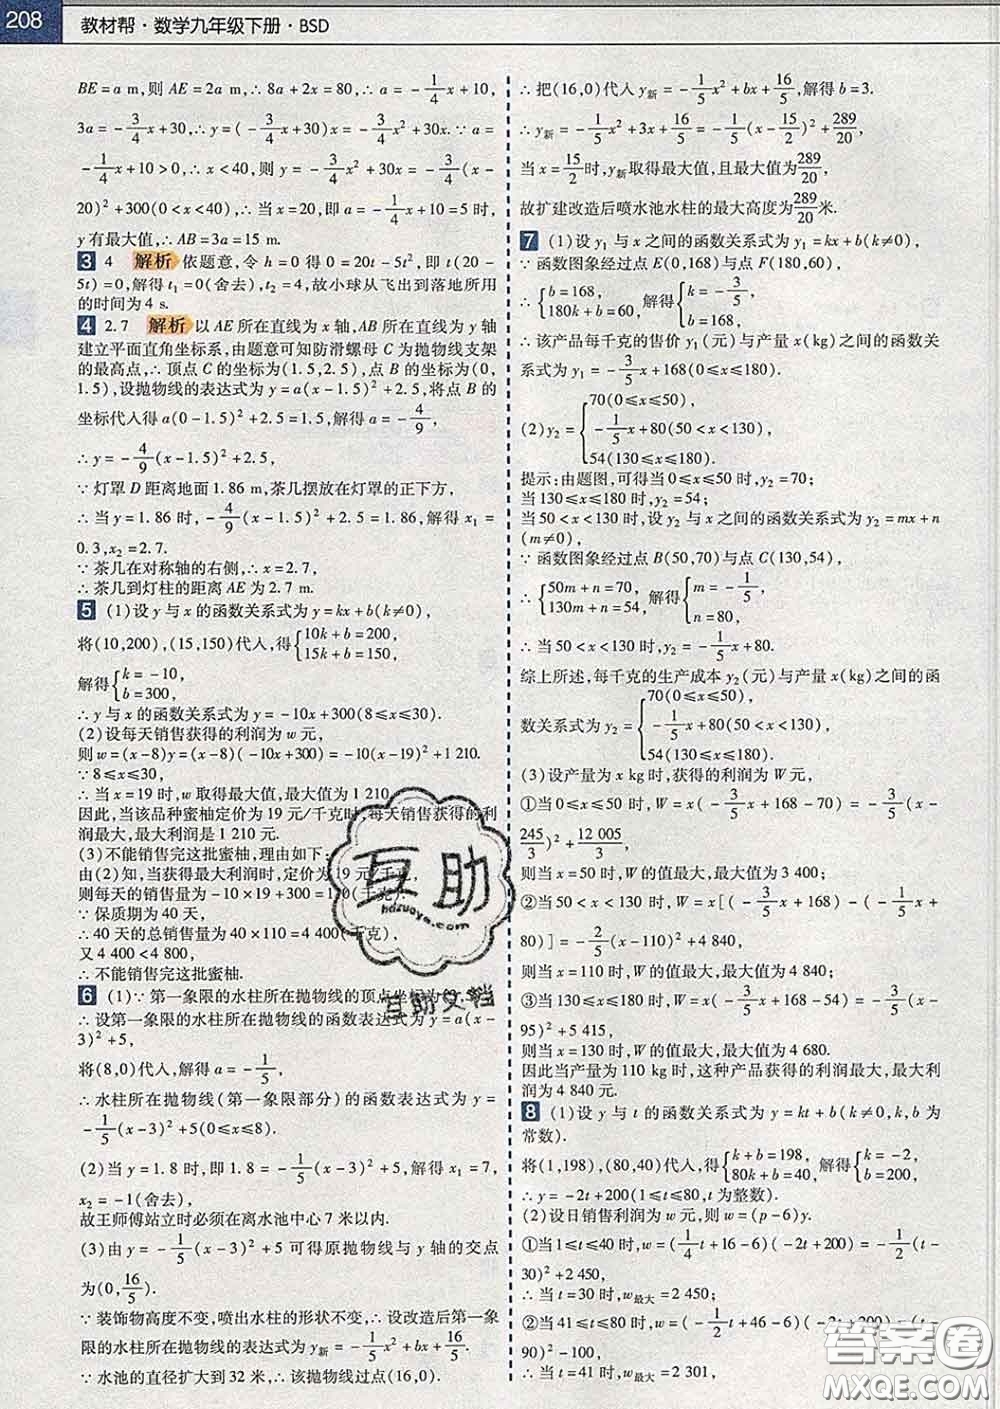 208 教材帮·数学九年级下册·BSD
BE=a m,则 AE=2a m,∴8a+2x=80,∴a=-1/4x+10,
3a=-3/4x+30,∴y=(-3/4x+30)x=-3/4x²+30x.∵a=
-1/4x+10>0,∴x<40,∴则 y=-3/4x²+30x=-3/4(x-
20)²+300(0<x<40),∴当 x=20,即 a=-1/4x+10=5 时,
y 有最大值,∴AB=3a=15 m.
3 4 解析 依题意,令 h=0 得 0=20t-5t²,即 t(20-
5t)=0,解得 t₁=0(舍去),t₂=4,故小球从飞出到落地所用
的时间为 4 s.
4 2.7 解析 以 AE 所在直线为 x 轴,AB 所在直线为 y 轴
建立平面直角坐标系,由题意可知防滑螺母 C 为抛物线支架
的最高点,∴顶点 C 的坐标为(1.5,2.5),点 B 的坐标为(0,
1.5),设抛物线的表达式为 y=a(x-1.5)²+2.5,将点 B 的
坐标代入得 a(0-1.5)²+2.5=1.5,解得 a=-4/9,
∴y=-4/9(x-1.5)²+2.5,
∵灯罩 D 距离地面 1.86 m,茶几摆放在灯罩的正下方,
∴当 y=1.86 时,-4/9(x-1.5)²+2.5=1.86,解得 x₁=
0.3,x₂=2.7.
∵茶几在对称轴的右侧,∴x=2.7,
∴茶几到灯柱的距离 AE 为 2.7 m.
5 (1)设 y 与 x 的函数关系式为 y=kx+b(k≠0),
将(10,200),(15,150)代入,得{10k+b=200, 15k+b=150,
解得{k=-10, b=300,
∴y 与 x 的函数关系式为 y=-10x+300(8≤x≤30).
(2)设每天销售获得的利润为 w 元,
则 w=(x-8)y=(x-8)(-10x+300)=-10(x-19)²+1 210.
∵8≤x≤30,
∴当 x=19 时,w 取得最大值,最大值为 1 210.
因此,当该品种蜜柚定价为 19 元/千克时,每天销售获得的利
润最大,最大利润是 1 210 元.
(3)不能销售完这批蜜柚,理由如下:
由(2)知,当获得最大利润时,定价为 19 元/千克,
则每天的销售量为-10×19+300=110(千克).
∵保质期为 40 天,
∴40 天的总销售量为 40×110=4 400(千克).
又 4 400<4 800,
∴不能销售完这批蜜柚.
6 (1)∵第一象限的水柱所在抛物线的顶点坐标为(3,5),
∴设第一象限的水柱所在抛物线的函数表达式为 y=a(x-
3)²+5,
将(8,0)代入,解得 a=-1/5,
∴水柱所在抛物线(第一象限部分)的函数表达式为 y=
-1/5(x-3)²+5(0≤x≤8).
(2)当 y=1.8 时,即 1.8=-1/5(x-3)²+5,解得 x₁=7,
x₂=-1(舍去),
故王师傅站立时必须在离水池中心 7 米以内.
(3)由 y=-1/5(x-3)²+5 可得原抛物线与 y 轴的交点
为(0,16/5).
∵装饰物高度不变,喷出水柱的形状不变,∴设改造后第一象
限的水柱所在抛物线的表达式为 y新=-1/5x²+bx+16/5,
∵水池的直径扩大到 32 米,∴该抛物线过点(16,0).
∴把(16,0)代入 y新=-1/5x²+bx+16/5,解得 b=3.
∴y新=-1/5x²+3x+16/5=-1/5(x-15/2)²+289/20,
当 x=15/2 时,y新取得最大值,且最大值为289/20,
故扩建改造后喷水池水柱的最大高度为289/20米.
7 (1)设 y₁ 与 x 之间的函数关系式为 y₁=kx+b(k≠0),
∵函数图象经过点 E(0,168)与点 F(180,60),
∴{b=168, 180k+b=60, 解得{k=-3/5, b=168,
∴该产品每千克的售价 y₁(元)与产量 x(kg)之间的函数关
系式为 y₁=-3/5x+168(0≤x≤180).
(2)y₂={70(0≤x≤50), -1/5x+80(50<x<130), 54(130≤x≤180).
提示:由题图,可得当 0≤x≤50 时,y₂=70;
当 130≤x≤180 时,y₂=54;
当 50<x<130 时,设 y₂ 与 x 之间的函数关系式为 y₂=mx+n
(m≠0),
∵函数图象经过点 B(50,70)与点 C(130,54),
∴{50m+n=70, 130m+n=54, 解得{m=-1/5, n=80,
∴当 50<x<130 时,y₂=-1/5x+80.
综上所述,每千克的生产成本 y₂(元)与产量 x(kg)之间的函
数关系式为 y₂={70(0≤x≤50), -1/5x+80(50<x<130), 54(130≤x≤180).
(3)设产量为 x kg 时,获得的利润为 W 元,
①当 0≤x≤50 时,W=x(-3/5x+168-70)=-3/5(x-
245/3)²+12 005/3,
则当 x=50 时,W 的值最大,最大值为 3 400;
②当 50<x<130 时,W=x[(-3/5x+168)-(-1/5x+
80)]=-2/5(x-110)²+4 840,
则当 x=110 时,W 的值最大,最大值为 4 840;
③当 130≤x≤180 时,W=x(-3/5x+168-54)=-3/5(x-
95)²+5 415,
则当 x=130 时,W 的值最大,最大值为 4 680.
因此当产量为 110 kg 时,这种产品获得的利润最大,最大利润
为 4 840 元.
8 (1)设 y 与 t 的函数关系式为 y=kt+b(k≠0,k,b 为
常数).
将(1,198),(80,40)代入,得{k+b=198, 80k+b=40, 解得{k=-2, b=200,
∴y=-2t+200(1≤t≤80,t 为整数).
(2)设日销售利润为 w 元,则 w=(p-6)y.
①当 1≤t≤40 时,w=(1/4t+16-6)(-2t+200)=-1/2(t-
30)²+2 450,
∴当 t=30 时,w最大=2 450;
②当 41≤t≤80 时,w=(-1/2t+46-6)(-2t+200)=(t-
90)²-100,
∴当 t=41 时,w最大=2 301,
互助
hdzuoye.com
互助文档
答案圈
MXQE.COM